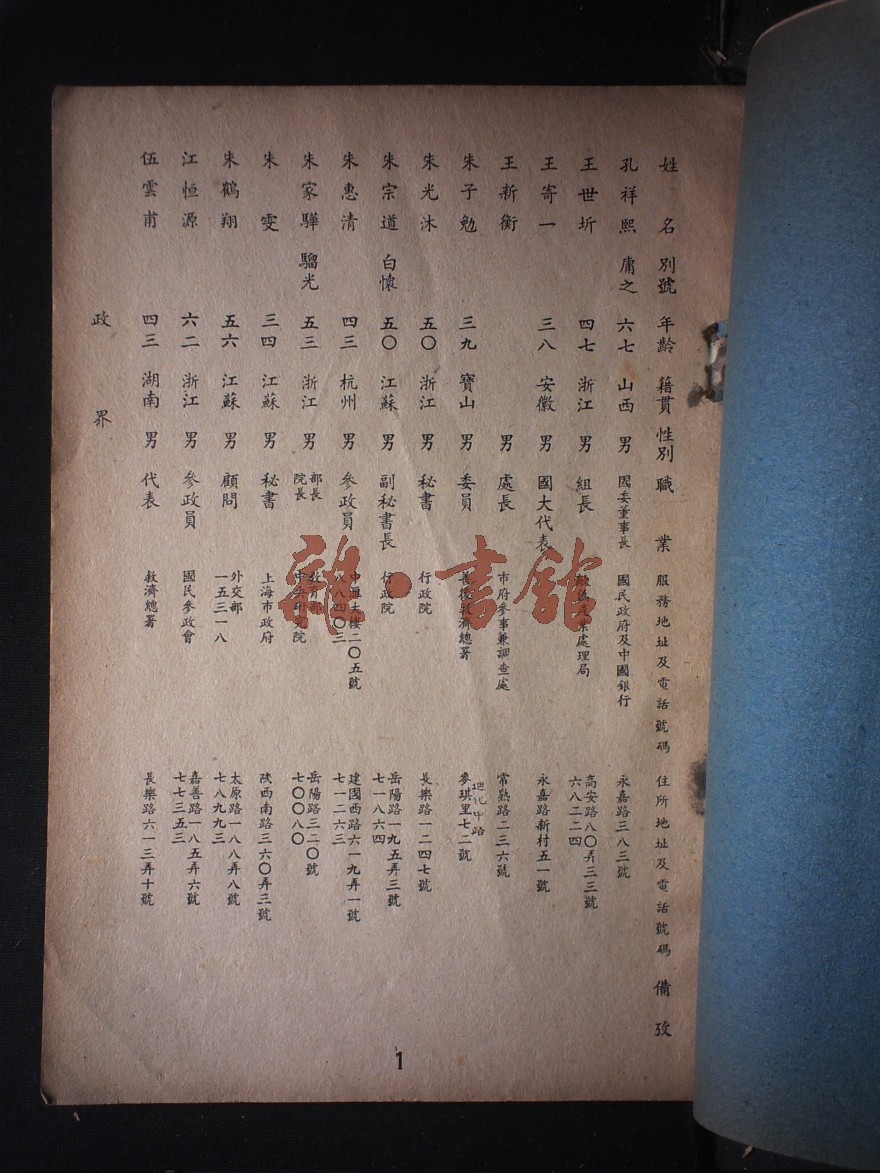 姓名 別號 年齡 籍貫 性別 職業 服務地址及電話號碼 住所地址及電話號碼 備攷
孔祥熙 庸之 六七 山西 男 國委董事長 國民政府及中國銀行 永嘉路三八三號
王世圻 四七 浙江 男 組長 產業處理局 高安路八〇弄三三號 六八二二四
王寄一 三八 安徽 男 國大代表 永嘉路新村五一號
王新衡 男 處長 市府參事兼調查處 常熟路二三六號
朱子勉 三九 寶山 男 委員 善後救濟總署 迪化中路 麥琪里七二號
朱光沐 五〇 浙江 男 秘書 行政院 長樂路一二四七號
朱宗道 白懷 五〇 江蘇 男 副秘書長 行政院 岳陽路一九五弄三號 七一八六四
朱惠清 四三 杭州 男 參政員 中匯大樓二〇五號 八四〇三 建國西路六一九弄一號 七一二六三
朱家驊 騮光 五三 浙江 男 部長 院長 教育部 中央研究院 岳陽路三二〇號 七〇〇八〇
朱雯 三四 江蘇 男 秘書 上海市政府 陝西南路三六〇弄三號
朱鶴翔 五六 江蘇 男 顧問 外交部 一五三一八 太原路一八八弄八號 七八九九三
江恒源 六二 浙江 男 參政員 國民參政會 嘉善路一八五弄六號 七七三五三
伍雲甫 四三 湖南 男 代表 救濟總署 長樂路六一三弄十號
政界
1
雜·書館